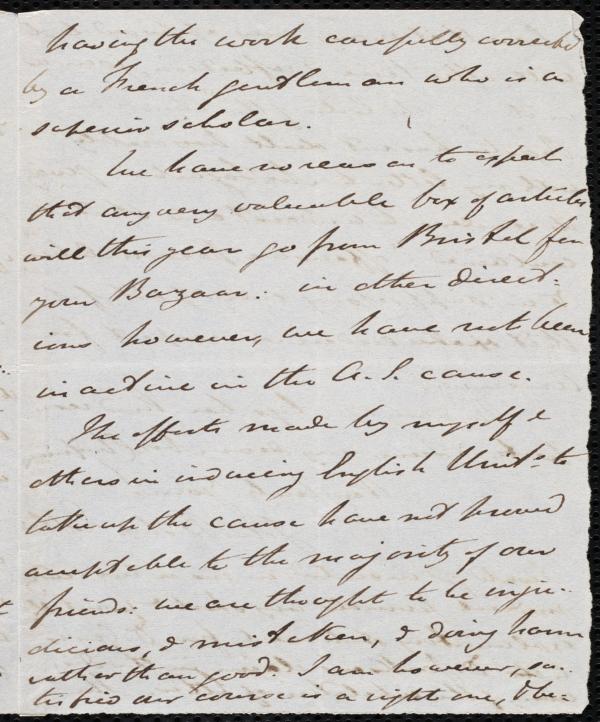 having the work carefully corrected
by a French gentleman who is a
superior scholar.
We have no reason to expect
that any very valuable box of articles
will this year go from Bristol for
your Bazaar: in other direct-
ions however, we have not been
inactive in the A.S. cause.
The efforts made by myself &
others in inducing English Unitns to
take up the cause have not proved
acceptable to the majority of our
friends: we are thought to be inju-
dicious, & mistaken, & doing harm
rather than good. I am however, sa-
tisfied our course is a right one, & be-